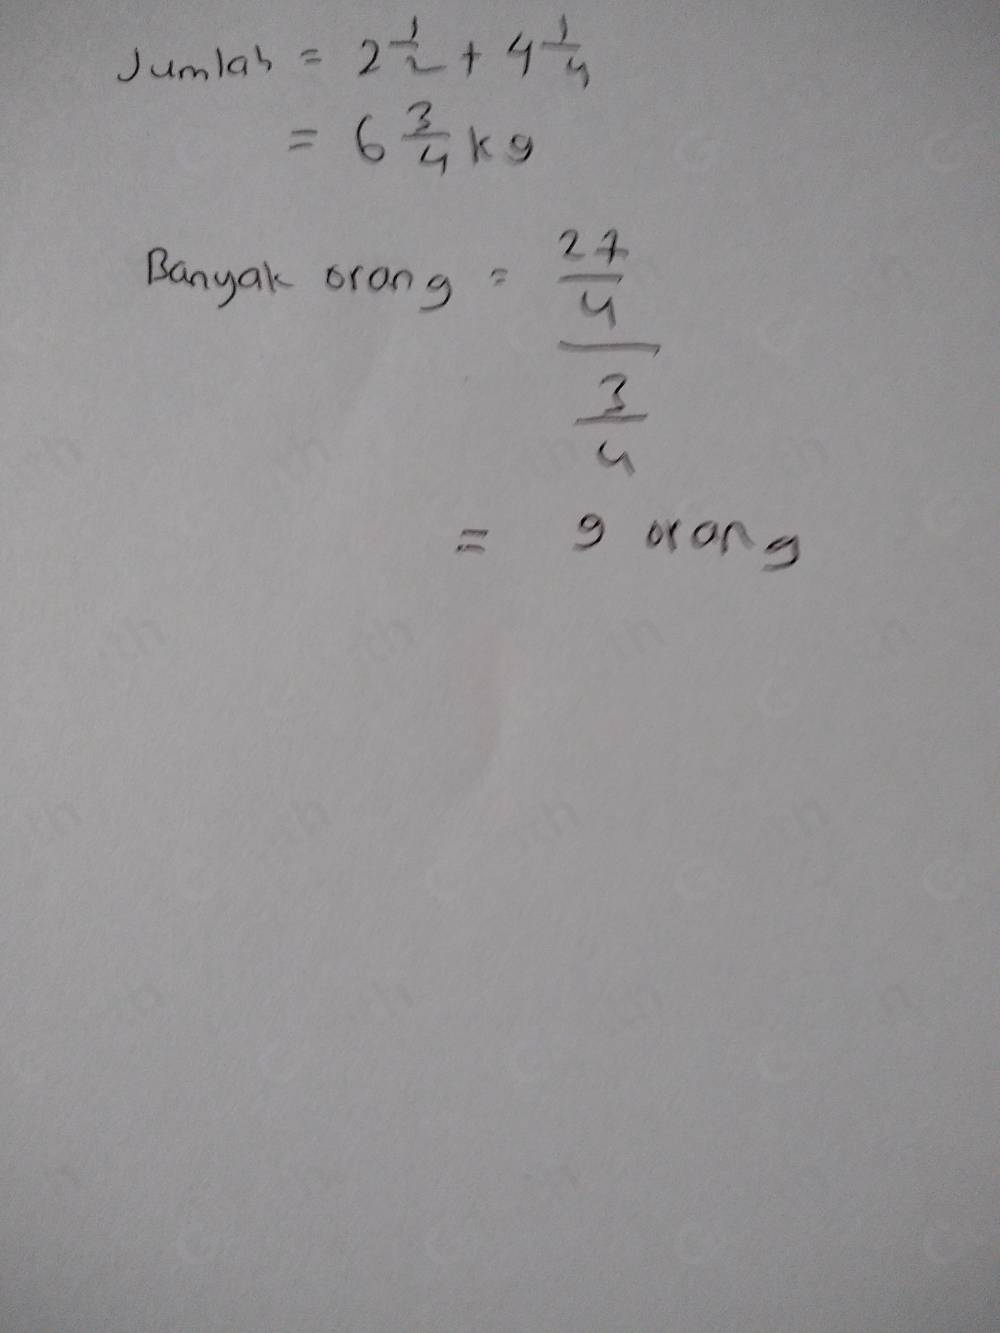 Jumlah = 2 1/2 + 4 1/4
= 6 3/4 kg
Banyak orang = 27/4 / 3/4
= 9 orang